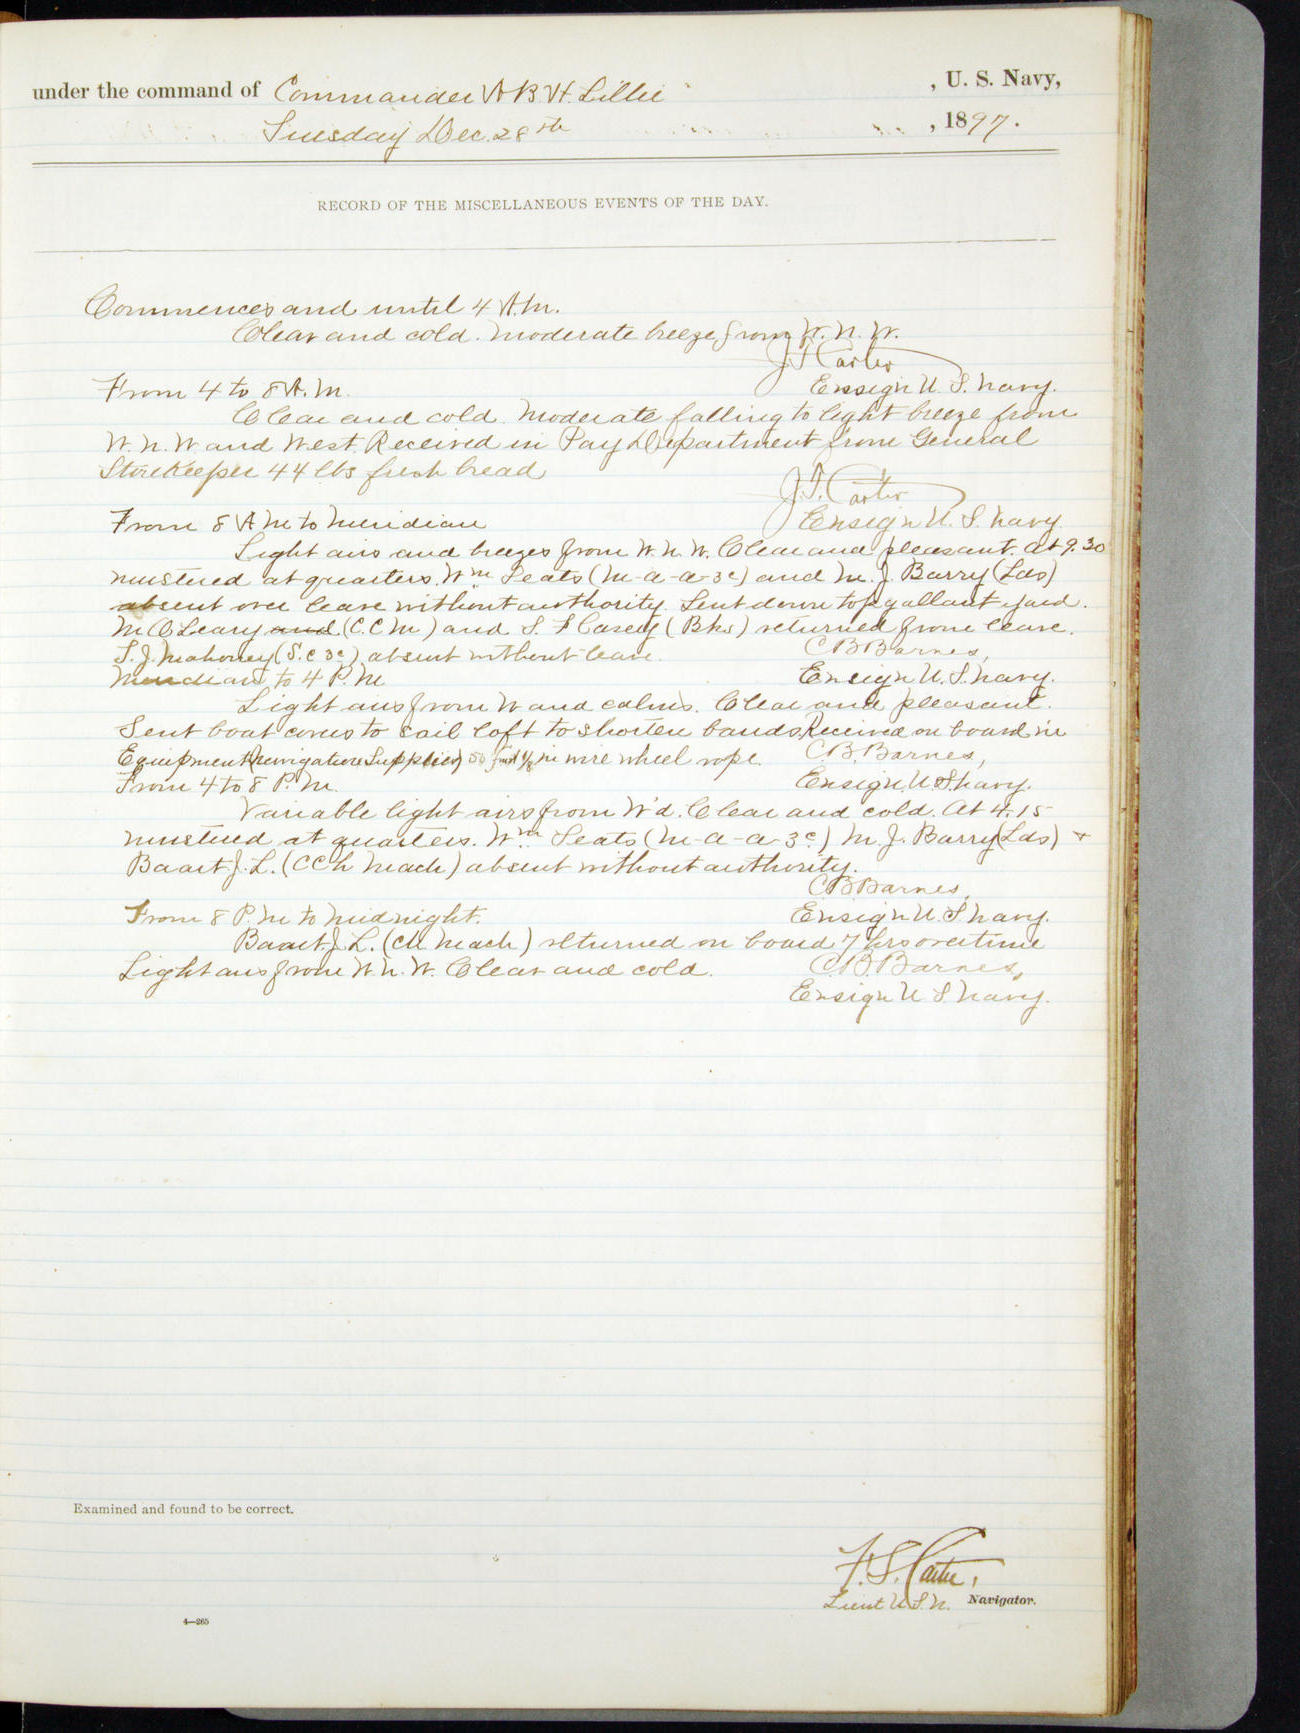 under the command of Commander A B H. Lillie , U. S. Navy,
Tuesday Dec. 28th , 1897.
RECORD OF THE MISCELLANEOUS EVENTS OF THE DAY.
Commences and until 4 A.M.
Clear and cold. Moderate breeze from W. N. W.
Carter
From 4 to 8 A.M. Ensign U. S. Navy.
Clear and cold. Moderate falling to light breeze from
W. N. W and West. Received in Pay Department from General
Storekeeper 44 lbs fresh bread
Carter
From 8 A M to Meridian Ensign U. S. Navy
Light airs and breezes from W. N. W. Clear and pleasant. At 9.30
mustered at quarters. Wm Seats (M-a-a-3c) and M. J. Barry (Lds)
absent over leave without authority. Sent down top gallant yard.
M O Leary and (C. C M) and S. F Casey (Bks) returned from leave.
T. J. Mahoney (S. C 3c) absent without leave. C B Barnes,
Meridian to 4 P. M Ensign U. S. Navy.
Light airs from W and calms. Clear and pleasant.
Sent boat covers to sail loft to shorten bands. Received on board in
Equipment (Navigation Supplies) 50 feet 1/8 in wire wheel rope. C. B. Barnes,
From 4 to 8 P. M. Ensign U. S. Navy.
Variable light airs from W'd. Clear and cold. At 4.15
mustered at quarters. Wm Seats (M-a-a-3c) M. J. Barry (Lds) +
Baart J. L. (C Ch Mach) absent without authority.
C B Barnes,
From 8 P. M to Midnight. Ensign U. S Navy.
Baart J. L. (Ch Mach) returned on board 7 hrs overtime
Light airs from W. N. W. Clear and cold. C. B. Barnes,
Ensign U. S Navy.
Examined and found to be correct.
F. S. Carter,
Lieut U. S. N. Navigator.
4—265